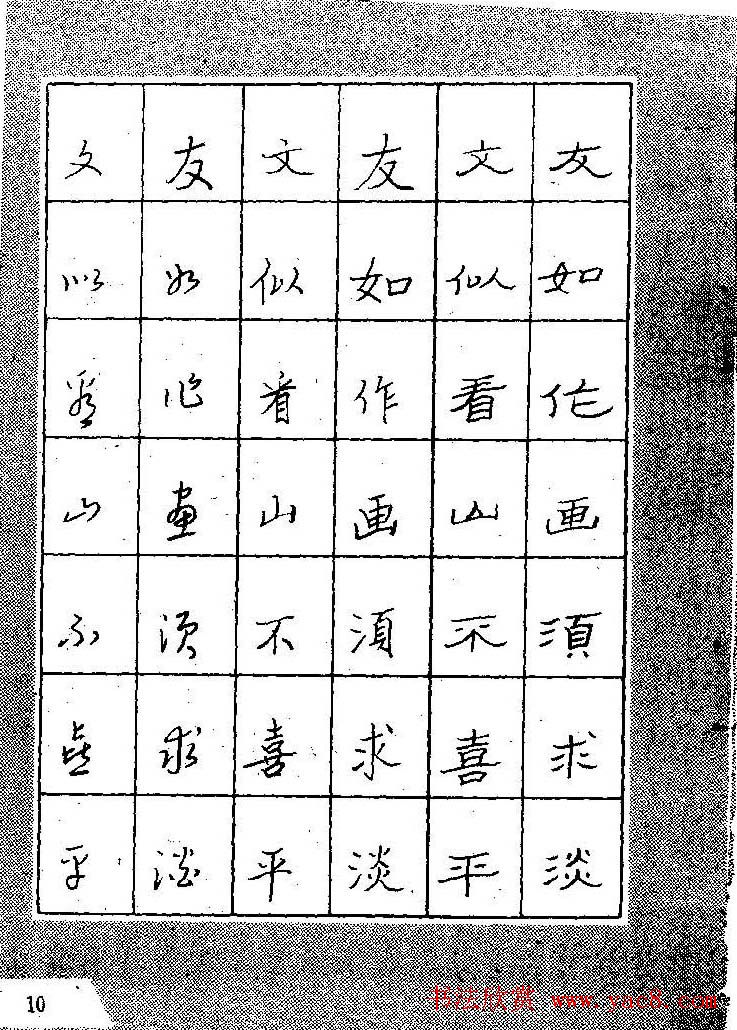 友如作画須求淡
文似看山不喜平
友如作画須求淡
文似看山不喜平
友如作畫須求淡
文似看山不喜平
10
书法欣赏 www.yac8.com